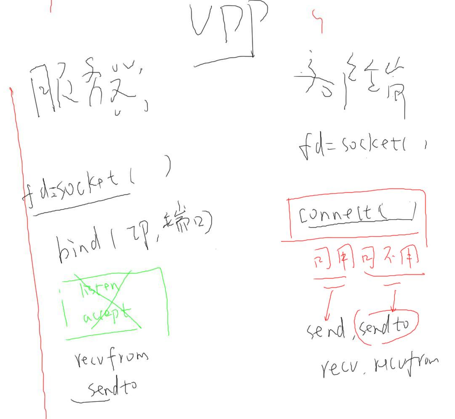 UDP
服务器
fd=socket( )
bind( IP,端口)
listen
accept
recvfrom
sendto
客户端
fd=socket( )
connect( )
可用 可不用
send, sendto
recv, recvfrom